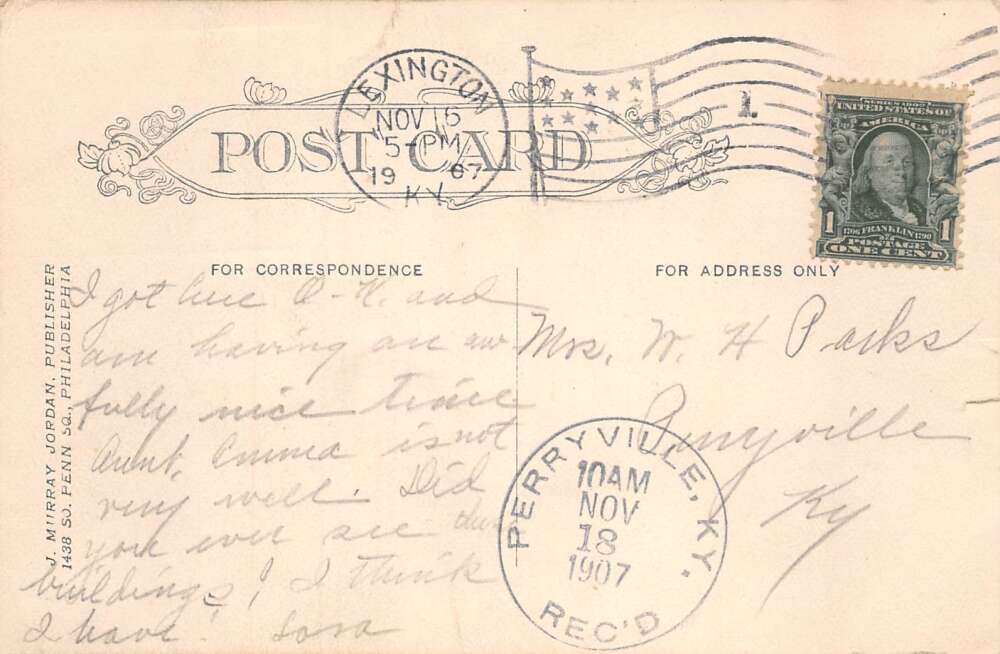 POST CARD
LEXINGTON
NOV 16
5-PM
19 07
KY.
1
SERIES 1902
UNITED STATES OF
AMERICA
1706 FRANKLIN 1790
1 POSTAGE 1
ONE CENT
FOR CORRESPONDENCE
FOR ADDRESS ONLY
J. MURRAY JORDAN, PUBLISHER
1438 SO. PENN SQ., PHILADELPHIA
I got here O-K. and
am having an aw
fully nice time
Aunt, Emma is not
very well. Did
you ever see these
buildings! I think
I have!
Mrs. W. H Parks
Ky
PERRYVILLE, KY.
10AM
NOV
18
1907
REC'D